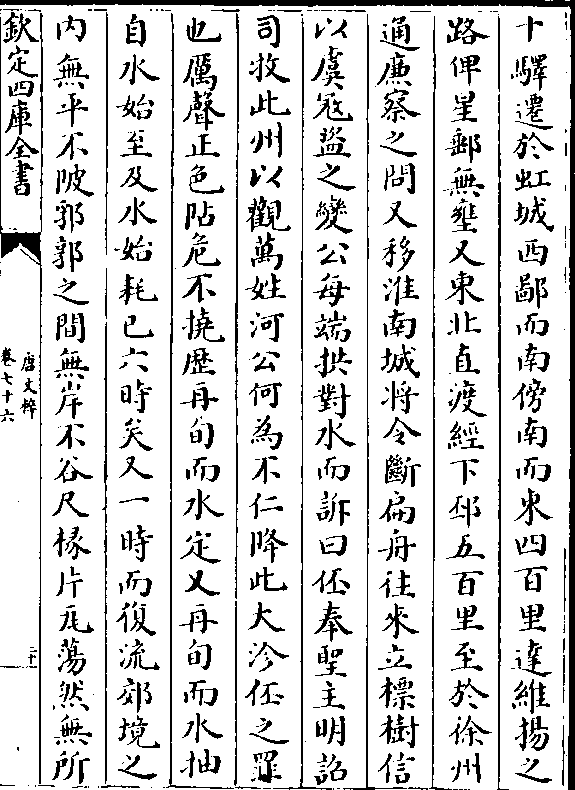 十驛遷於虹城西鄙而南傍南而東四百里達維揚之
路俾星郵無壅又東北直渡經下邳五百里至於徐州
通廉察之問又移淮南城將令斷扁舟往來立標樹信
以虞寇盜之變公每端拱對水而訴曰伾奉聖主明詔
司牧此州以觀萬姓河公何為不仁降此大沴伾之罪
也厲聲正色阽危不撓歷再旬而水定又再旬而水抽
自水始至及水始耗已六時矣又一時而復流郊境之
内無平不陂郛郭之間無岸不谷尺椽片瓦蕩然無所
欽定四庫全書
唐文粹
卷七十六
二十